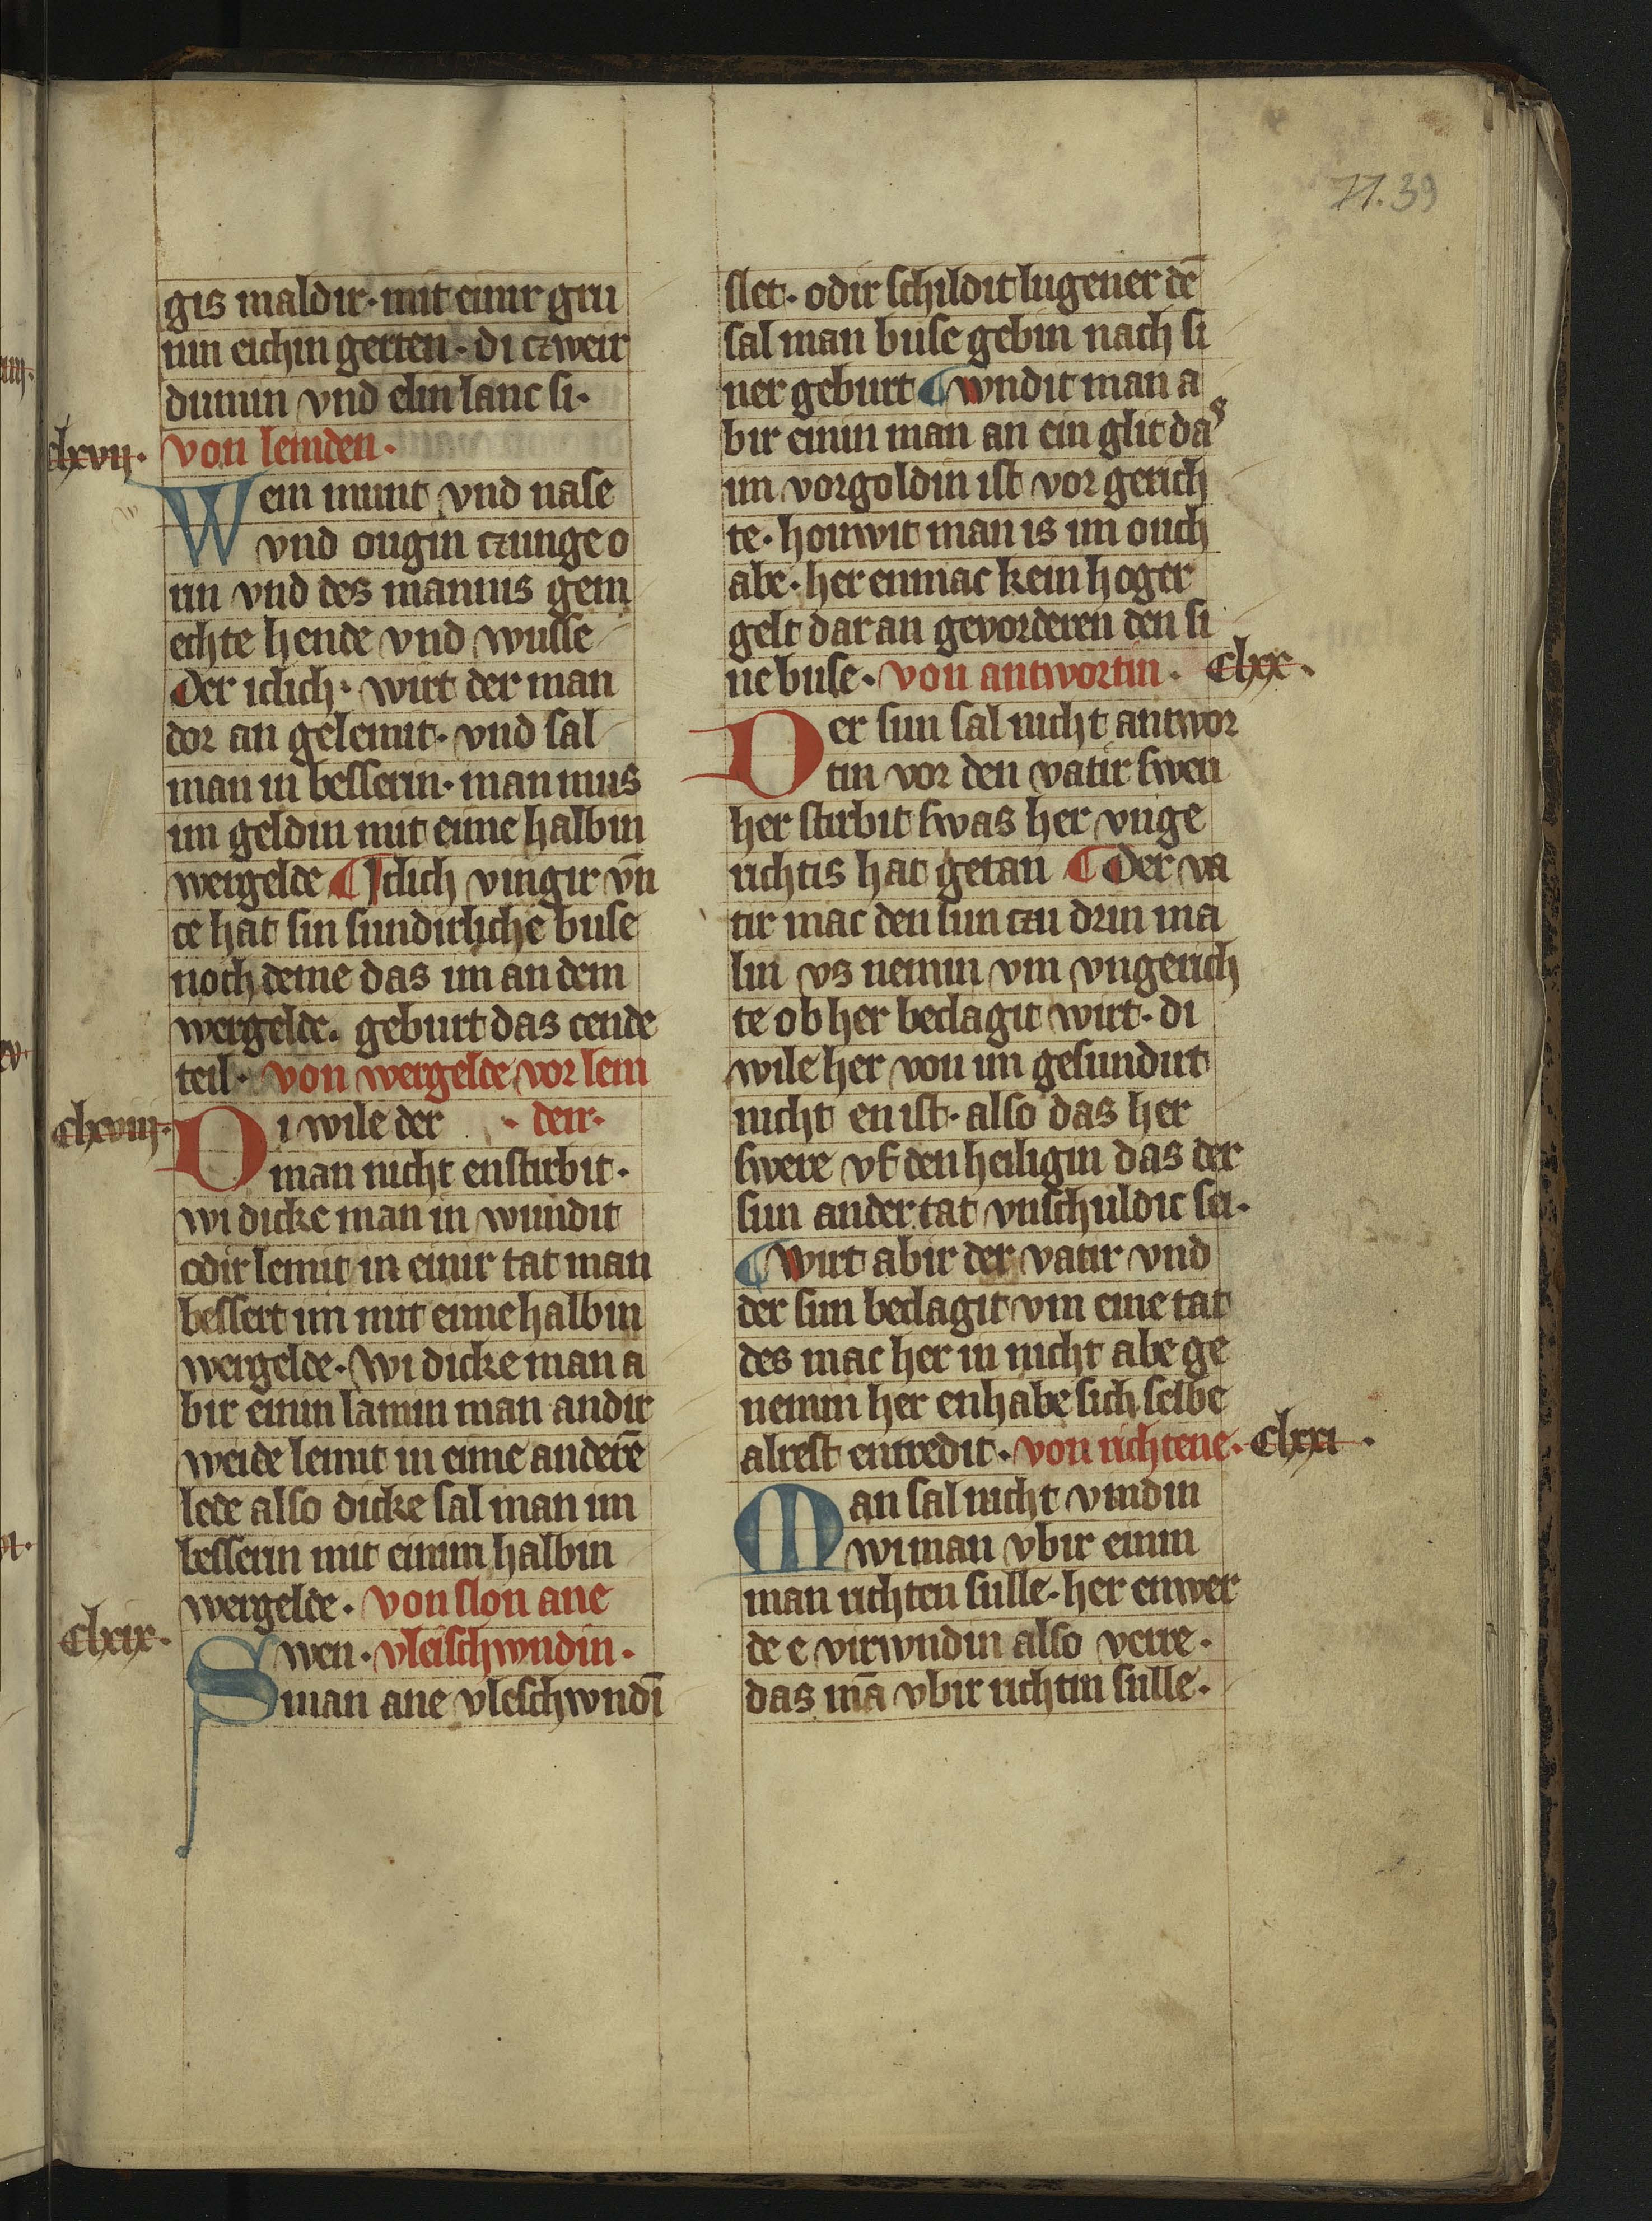 71.39
gis maldir· mit einir gru
nin eichin gerten· di czweir
dumin vnd elin lanc si·
clxvii· von lemden·
Wem munt vnd nase
vnd ougin czunge o
rin vnd des mannis gem
echte hende vnd wusse
Der iclich· wirt der man
dor an gelemit· vnd sal
man in bessern· man mus
im geldin mit eime halbin
wergelde ¶ Iclich vingir vn̄
ce hat sin sundirliche buse
noch deme das im an dem
wergelde. geburt das cende
teil· von wergelde vor lem
clxviii· Di wile der · deir·
man nicht enstirbit·
wi dicke man in wundit
odir lemit in einir tat man
bessert im mit eime halbin
wergelde· Wi dicke man a
bir einin lamin man andir
weide lemit in eime anderē
lede also dicke sal man im
besserin mit einim halbin
wergelde· von slon ane
clxix· Swen· vleischwndin·
man ane vleschwndī
slet· odir schildit lugener dē
sal man buse gebin nach si
ner geburt ¶ wndit man a
bir einin man an ein glit das
im vorgoldin ist vor gerich
te· houwit man is im ouch
abe· her enmac kein hoger
gelt dar an gevorderen den si
ne buse· von antwortin· clxx·
Der sun sal nicht antwor
tin vor den vatir swen
her stirbit swas her vnge
richtis hat getan ¶ Der va
tir mac den sun czu drin ma
lin vs nemin vm vngerich
te ob her beclagit wirt· di
wile her von im gesundirt
nicht en ist· also das her
swere vf den heiligin das der
sun an der tat vnschuldic sei·
¶ Wirt abir der vatir vnd
der sun beclagit vm eine tat
des mac her in nicht abe ge
nemin her enhabe sich selbe
alrest entredit· von richtene· clxxi·
Man sal nicht vindin
wi man vbir einin
man richten sulle· her enwer
de e virwndin also verre·
das mā vbir richtin sulle·